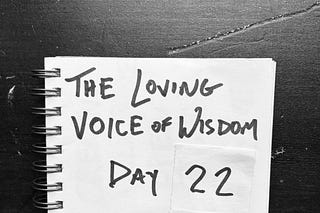 THE LOVING
VOICE OF WISDOM
DAY 22